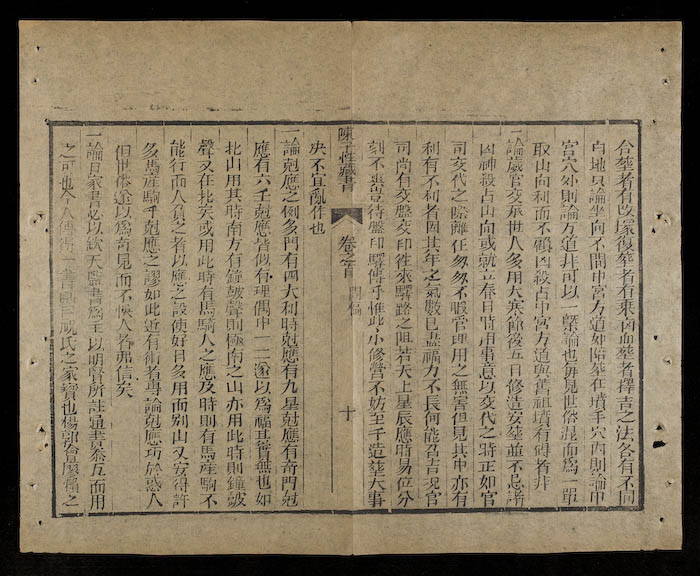 合葬者有改塚復葬者有乘凶而葬者擇吉之法各有不同
白地只論坐向不問中宮方道如啟葬在墳手穴內則論中
宮穴外則論方道非可以一槩論也每見世俗混而爲一單
取山向利而不顧凶殺占中宮方道與舊祖墳有碍者非
一論歲官交承世人多用大寒節後五日修造安葬並不忌諸
凶神殺占山向或就立春日時用事意以交代之時正如官
司交代之際離任匆匆不暇管理用之無害但見其中亦有
利有不利者因其年之氣數已盡福力不長何能召吉况官
司尚有交盤交印徃來驛路之阻若天上星辰應時易位分
刻不爽豈待盤印驛傳乎惟此小修營不妨至于造葬大事
決不宜亂作也
陳子性藏書
卷之首
十
一論尅應之例多門有四大利時尅應有九星尅應有奇門尅
應有六壬尅應皆似有理偶中一二遂以爲福其實無也如
北山用某時南方有鐘皷聲則極南之山亦用此時則鐘皷
聲又在北矣或用此時有馬騎人之應及時則有馬産駒不
能行而人負之者以應之設使好日多用而別山又安得許
多馬産駒乎尅應之謬如此近有術者專論尅應巧於惑人
但世俗遂以爲奇見而不悞人者弗信矣
一論日家書必以欽天監書爲主以明賢所註通書叅互而用
之可也今人傳得一書輒曰祝氏之家寳也楊郭曾廖賴之